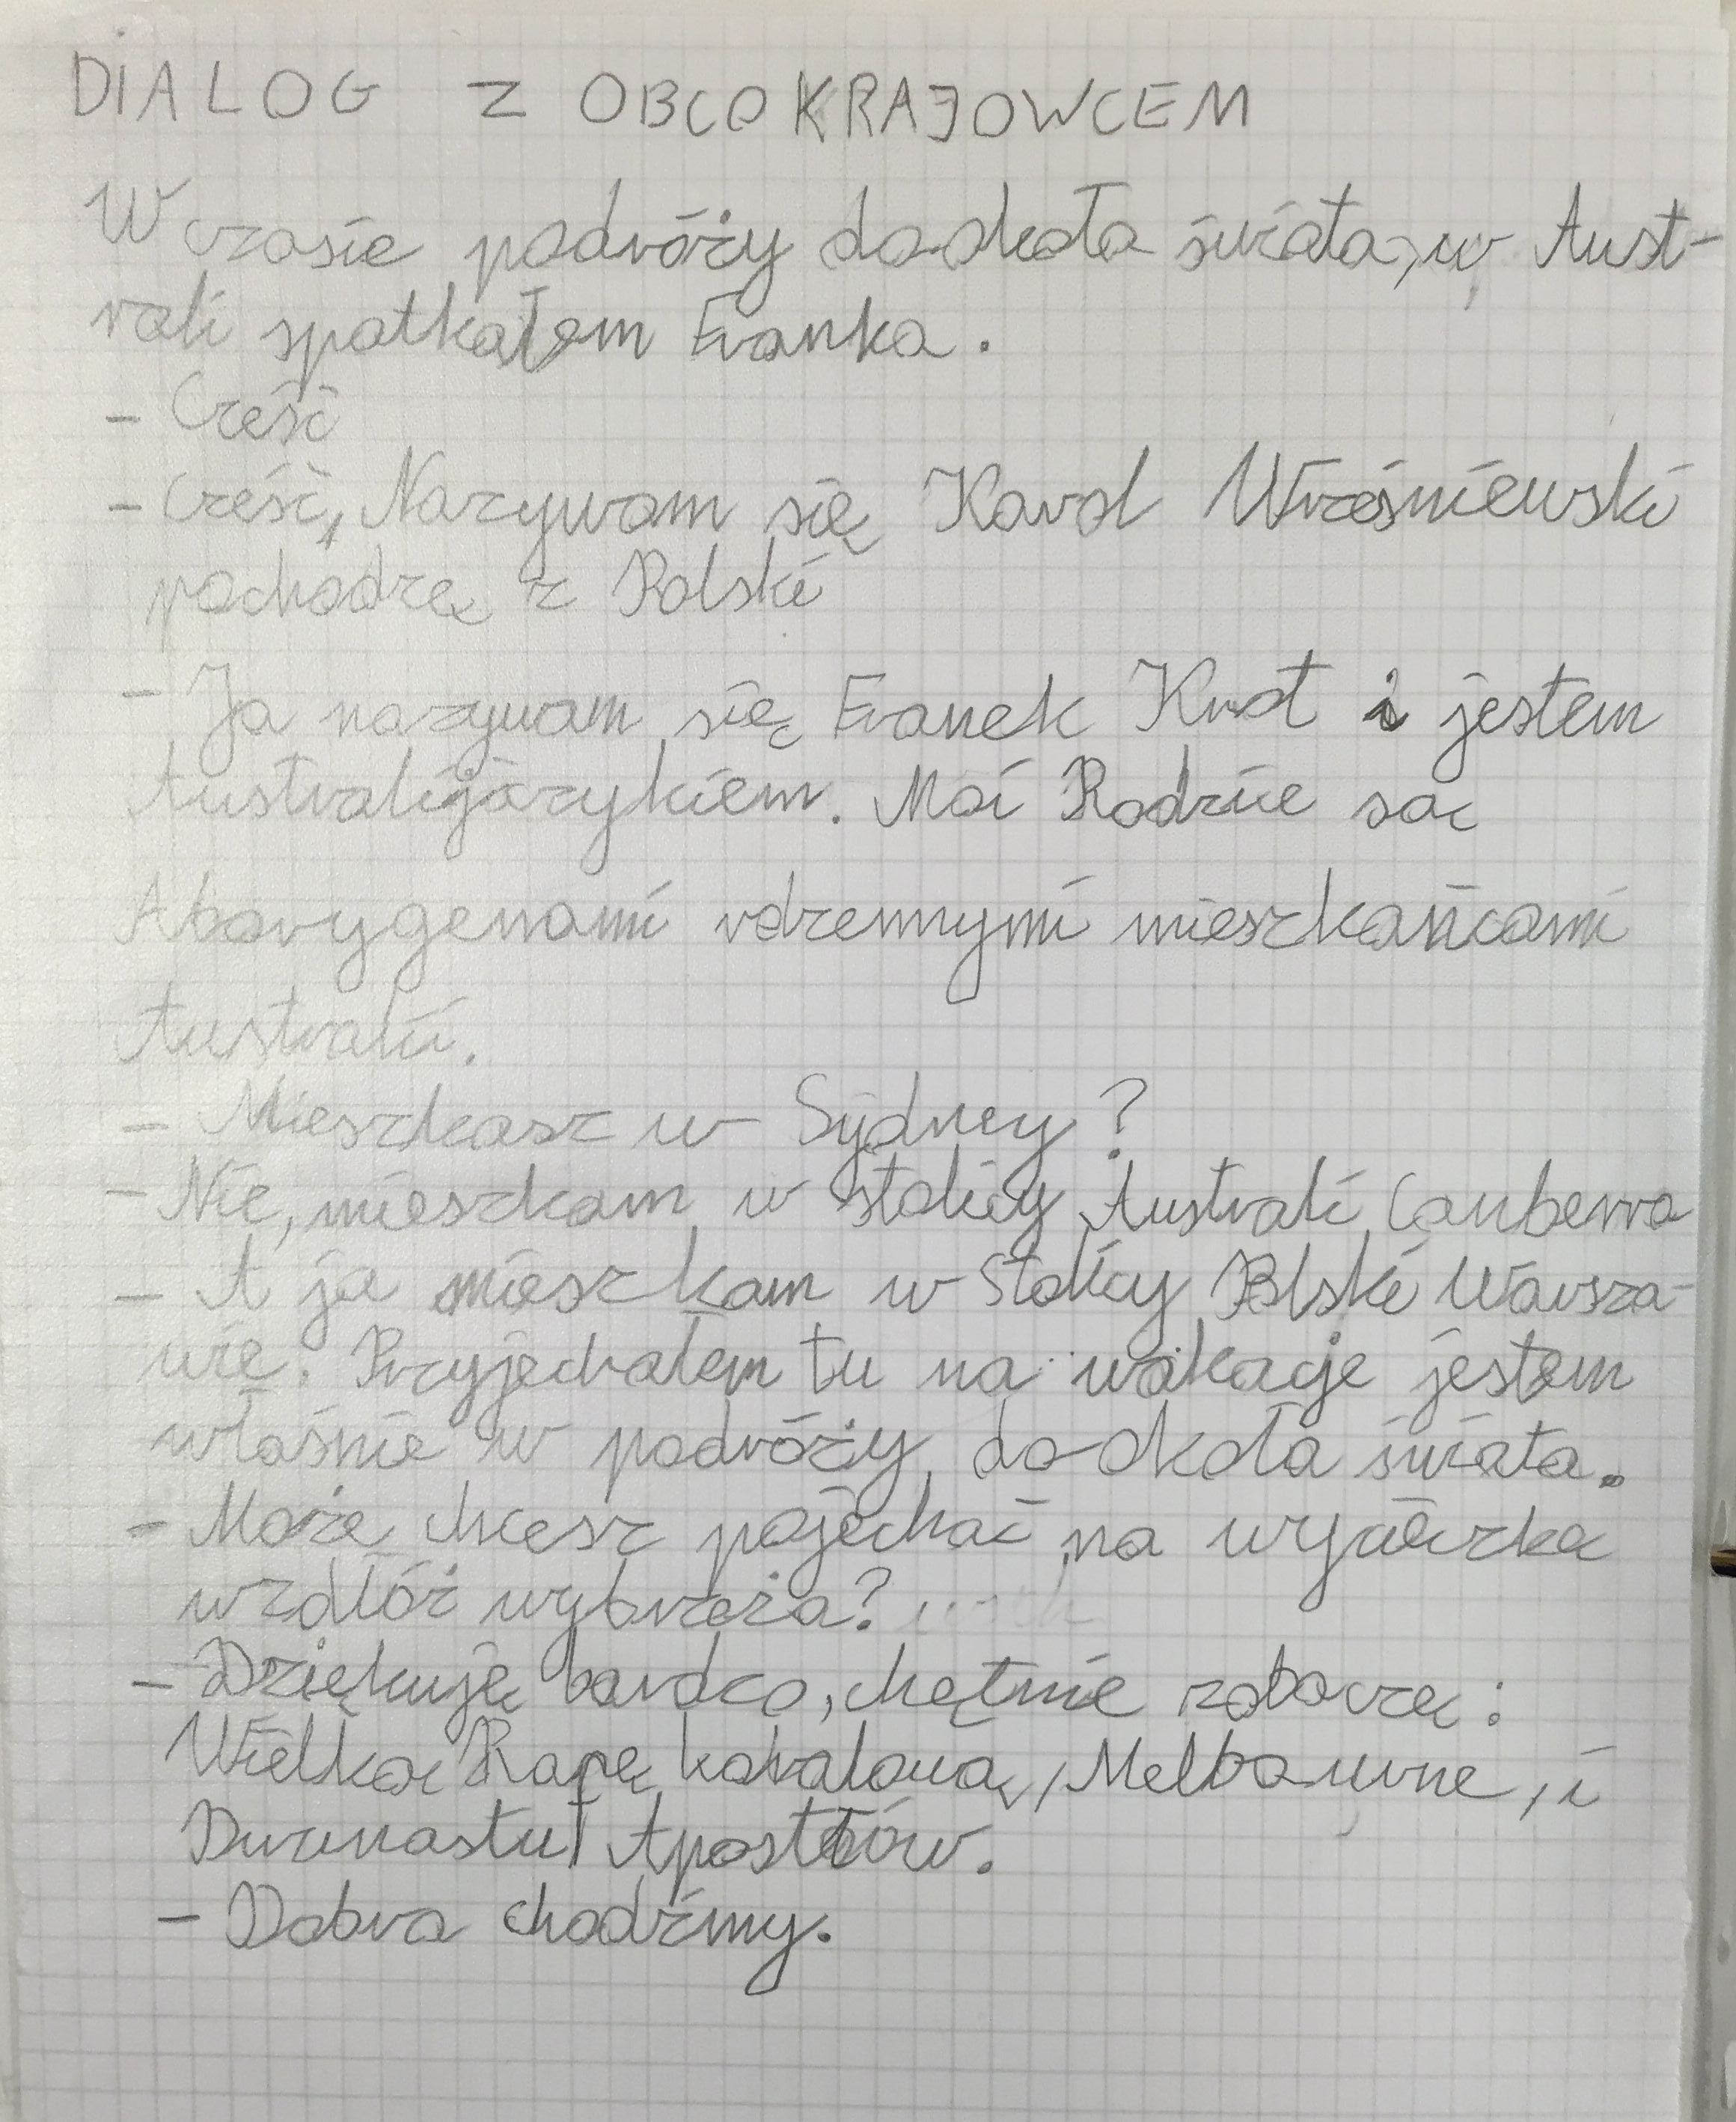 DIALOG Z OBCOKRAJOWCEM
W czasie podróży do-okoła świata, w Aust-
rali spotkałem Franka.
- Cześć
- Cześć, Nazywam się Karol Wrześniewski
pochodzę z Polski
- Ja nazywam się Franek Knot i jestem
Australijczykiem. Moi Rodzice są
Aborygenami rdzennymi mieszkańcami
Australii.
- Mieszkasz w Sydney?
- Nie, mieszkam w stolicy Australi Canberra
- A ja mieszkam w Stolicy Polski Warsza-
wie. Przyjechałem tu na wakacje jestem
właśnie w podróży do-okoła świata.
- Może chcesz pojechać na wycieczkę
wzdłóż wybrzeża?
- Dziękuję bardzo, chętnie zobaczę:
Wielką Rafę koralową, Melbourne, i
Dwunastu Apostołów.
- Dobra chodźmy.